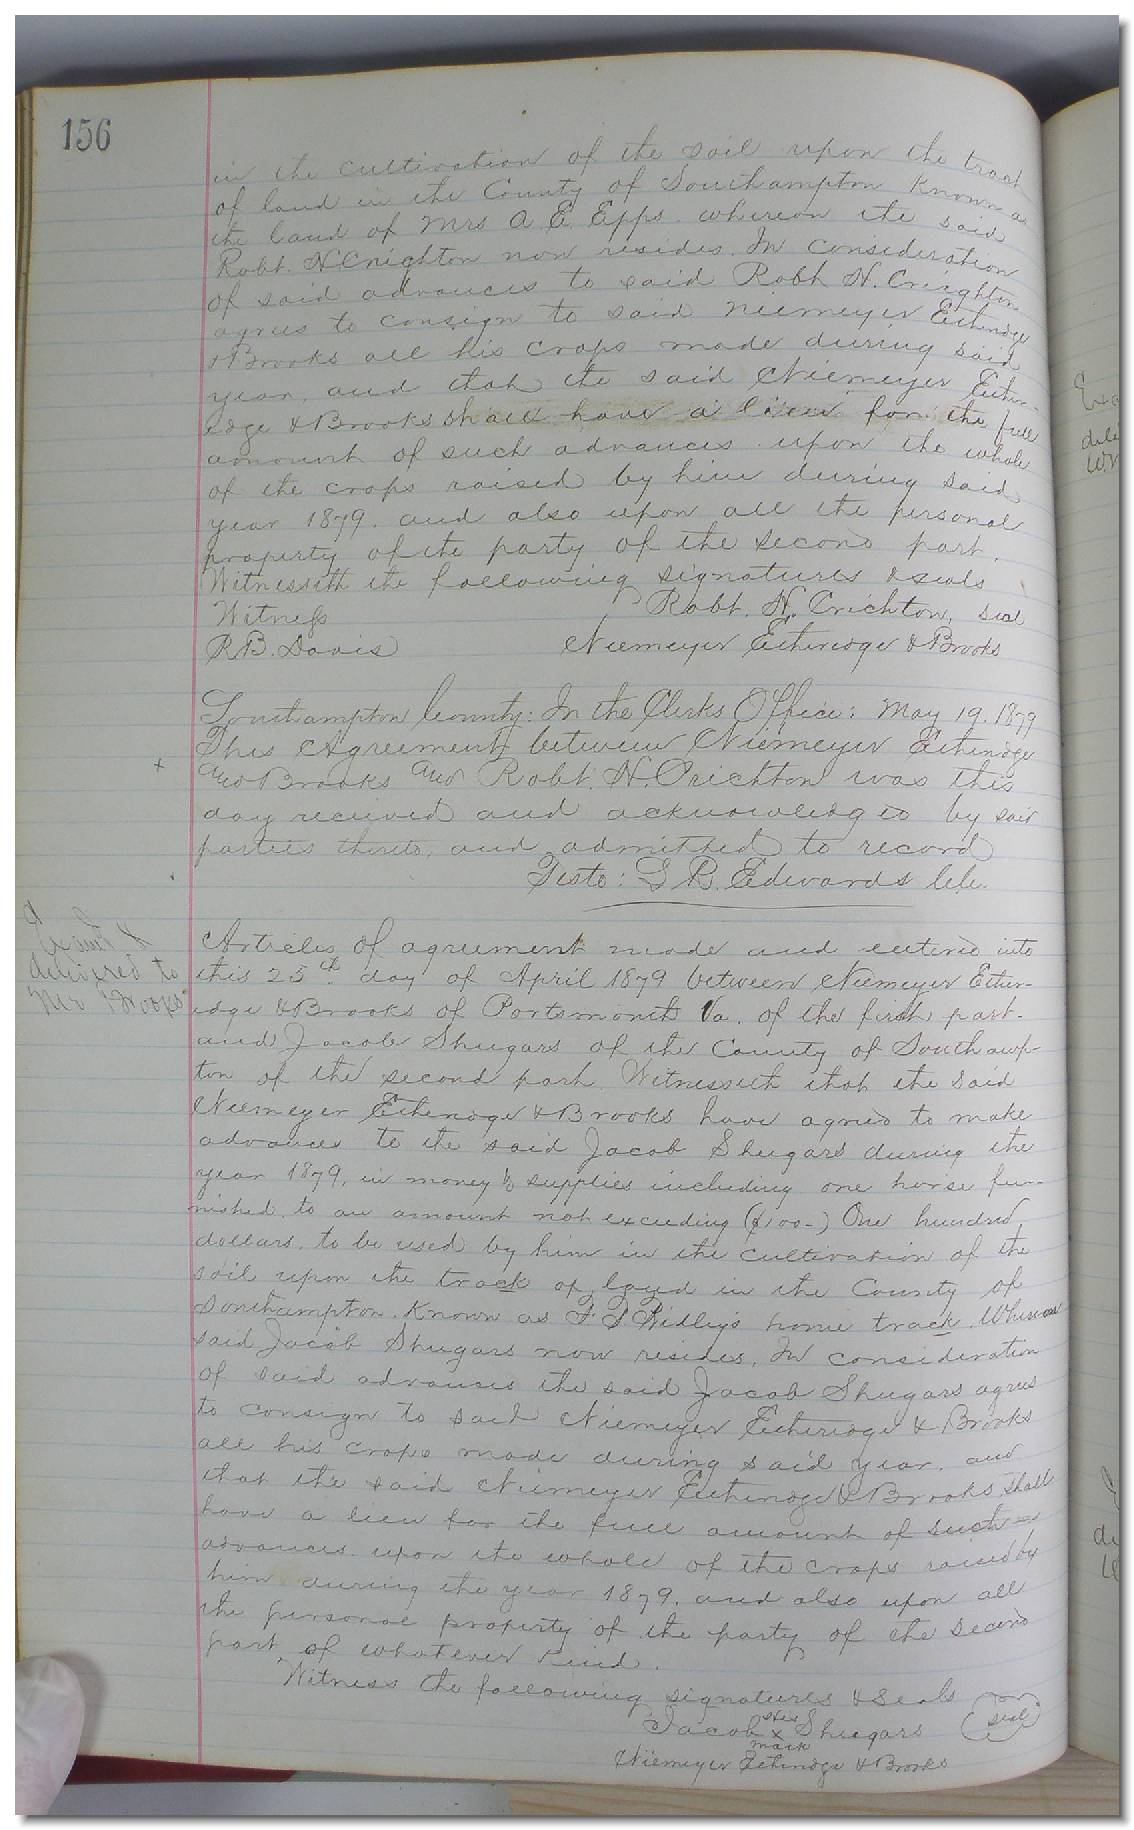 156
in the cultivation of the soil upon the tract
of land in the County of Southampton Known as
the land of Mrs A. E. Epps. whereon the said
Robt. N Crighton now resides. In consideration
of said advances to said Robt N. Creighton
agrees to consign to said Niemeyer Etheridge
& Brooks all his crops made during said
year and that the said Niemeyer Ether-
idge & Brooks shall have a lien for the full
amount of such advances upon the whole
of the crops raised by him during said
year 1879. and also upon all the personal
property of the party of the second part.
Witnesseth the following signatures & seals
Witness Robt. N. Crichton, seal
R.B. Davis Niemeyer Etheridge & Brooks
Southampton County: In the Clerks Office: May 19. 1879
This Agreement between Niemeyer Etheridge
and Brooks and Robt. N. Crichton was this
day received and acknowledged by said
parties thereto, and admitted to record
Teste: L R. Edwards
Articles of agreement made and entered into
this 25th day of April 1879 between Niemeyer Ether-
idge & Brooks of Portsmouth Va. of the first part.
and Jacob Shugars of the County of Southamp-
ton of the second part. Witnesseth that the said
Niemeyer Etheridge & Brooks have agreed to make
advances to the said Jacob Shugars during the
year 1879, in money & supplies including one horse fur-
nished to an amount not exceeding One hundred
dollars. to be used by him in the cultivation of the
soil upon the track of land in the County of
Southampton. Known as Ridleys home track. Whereon
said Jacob Shugars now resides, In consideration
of said advances the said Jacob Shugars agrees
to consign to said Niemeyer Etheridge & Brooks
all his crops made during said year. and
that the said Niemeyer Etheridge & Brooks shall
have a lien for the full amount of such
advances upon the whole of the crops raised by
him during the year 1879. and also upon all
the personal property of the party of the second
part of whatever kind.
Witness the following signatures & Seals
Jacob his x mark Shugars seal
Niemeyer Etheridge & Brooks
Examd &
delivered to
Mr Brooks